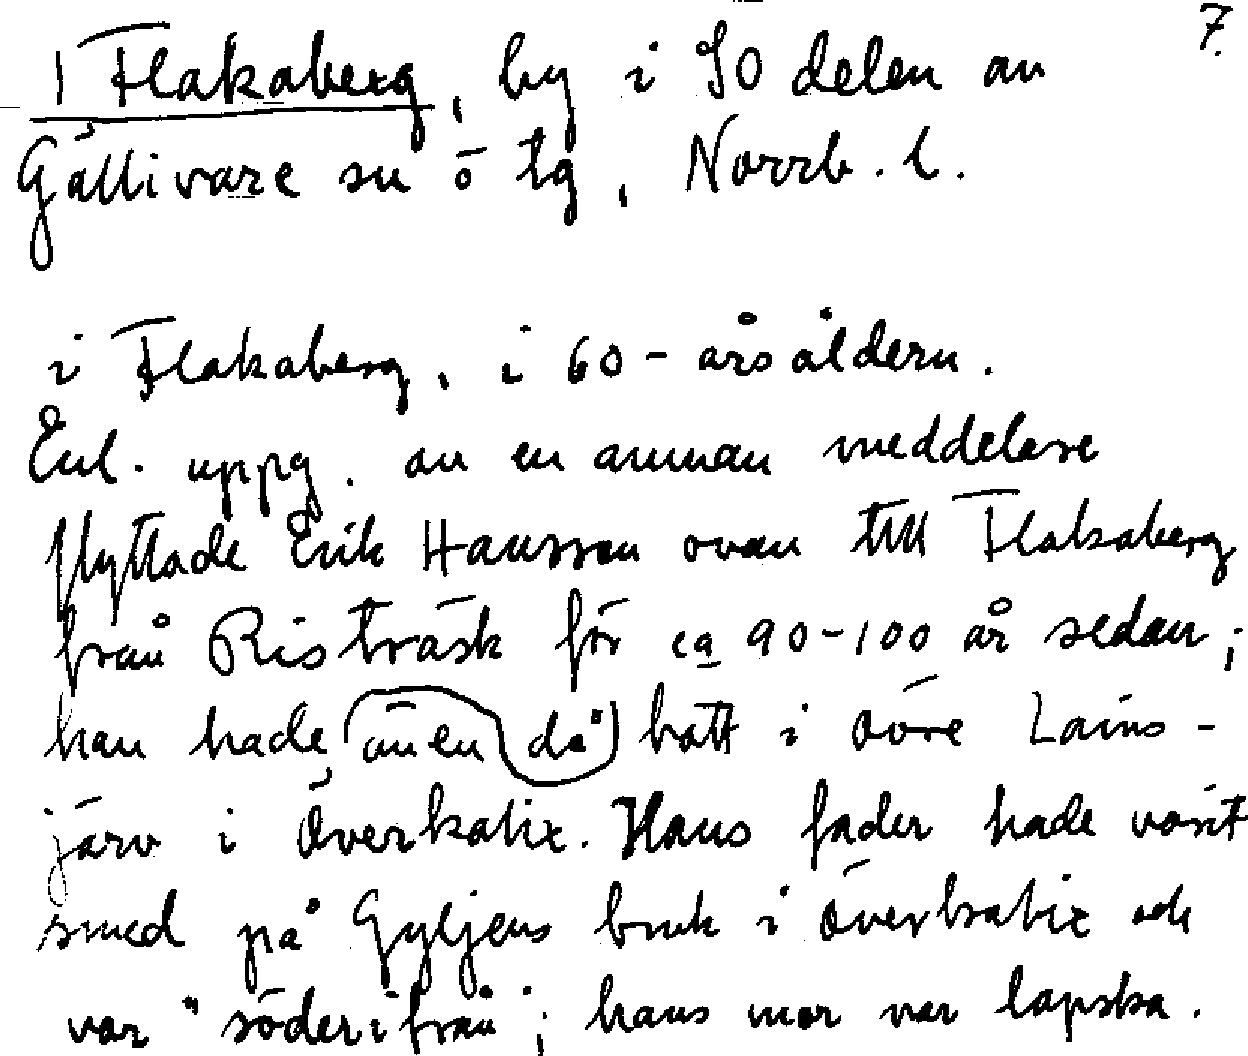 7.
1 Flakaberg, by i SO delen av
Gällivare sn o tg, Norrb. l.
i Flakaberg, i 60-årsåldern.
Enl. uppg. av en annan meddelare
flyttade Erik Hansson ovan till Flakaberg
från Risträsk för ca 90-100 år sedan;
han hade även då bott i övre Lains-
järv i Överkalix. Hans fader hade varit
smed på Gyljens bruk i Överkalix och
var "söderifrån"; hans mor var lapska.